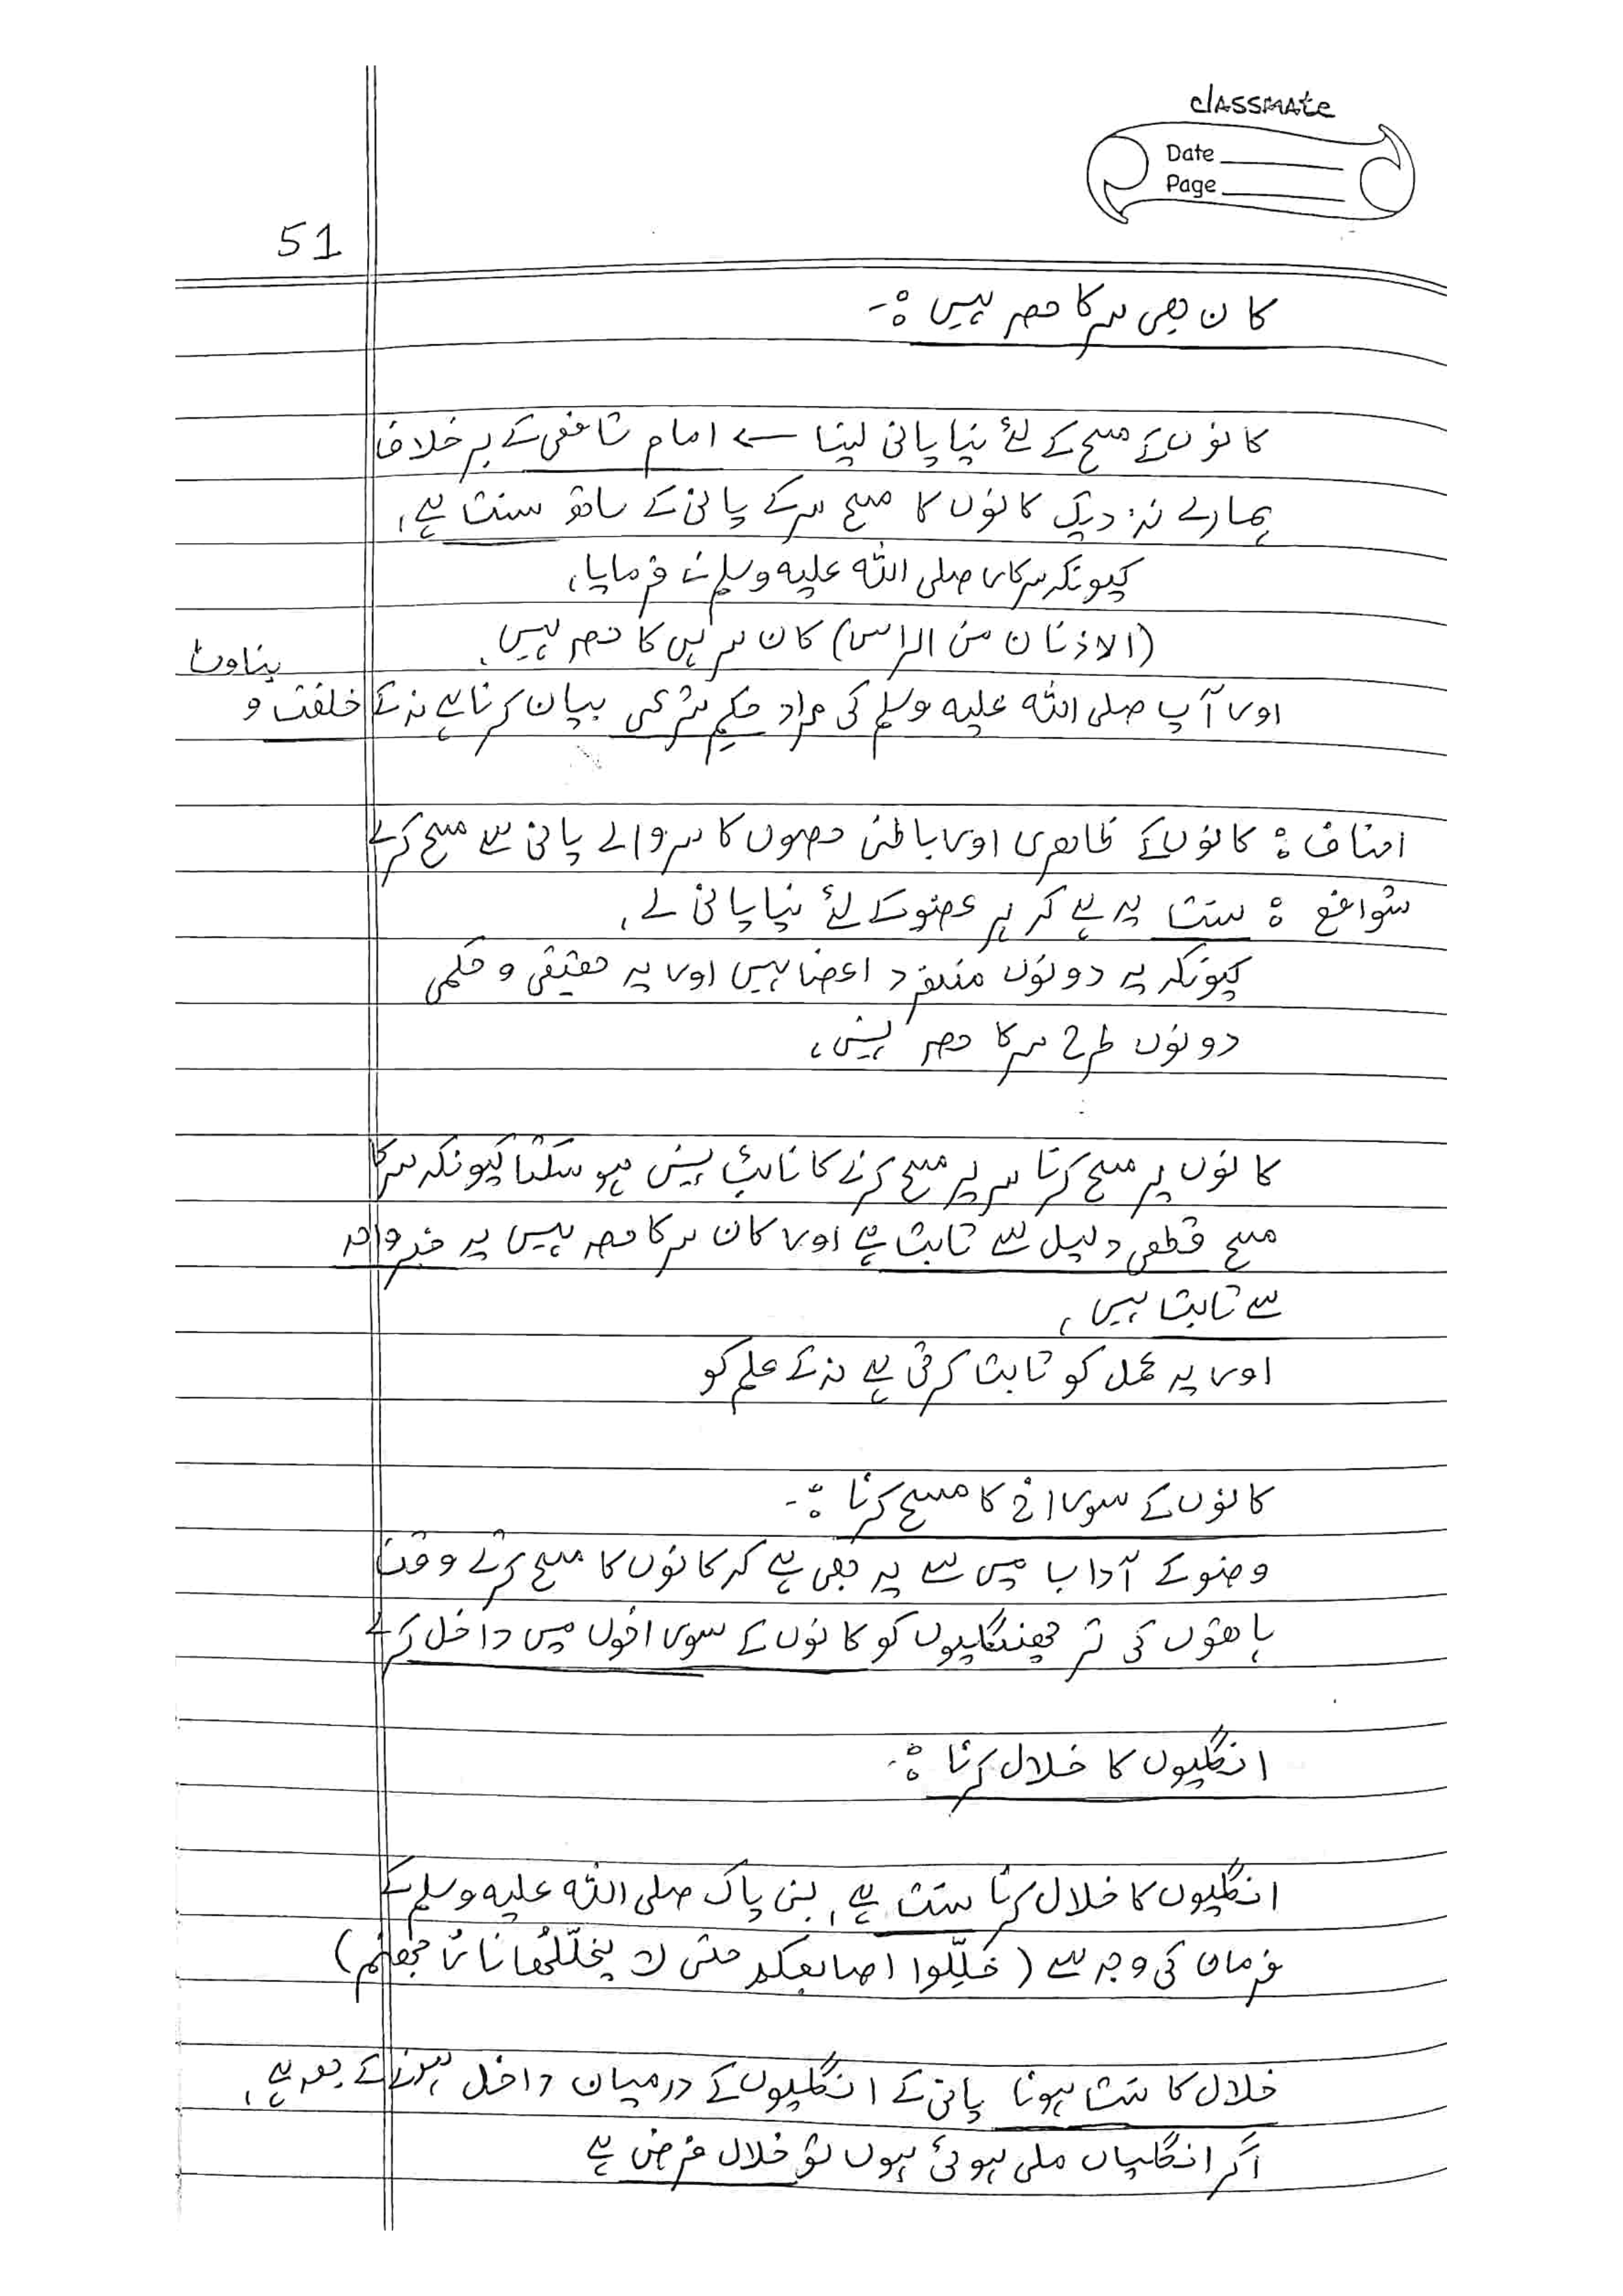 classmate
Date
Page
51
کان بھی سر کا حصہ ہیں :-
کانوں کے مسح کے لئے نیا پانی لینا ← امام شافعی کے بر خلاف
ہمارے نزدیک کانوں کا مسح سر کے پانی کے ساتھ سنت ہے،
کیونکہ سرکار صلی اللہ علیہ وسلم نے فرمایا،
(الاذنان من الراس) کان سر ہی کا حصہ ہیں،
بناوٹ
اور آپ صلی اللہ علیہ وسلم کی مراد حکم شرعی بیان کرنا ہے نہ کے خلقت و
احناف : کانوں کے ظاہری اور باطنی حصوں کا سر والے پانی سے مسح کرے
شوافع : سنت یہ ہے کہ ہر عضو کے لئے نیا پانی لے،
کیونکہ یہ دونوں منفرد اعضا ہیں اور یہ حقیقی و حکمی
دونوں طرح سر کا حصہ نہیں،
کانوں پر مسح کرنا سر پر مسح کرنے کا نائب نہیں ہو سکتا کیونکہ سر کا
مسح قطعی دلیل سے ثابت ہے اور کان سر کا حصہ ہیں یہ خبر واحد
سے ثابت ہیں،
اور یہ عمل کو ثابت کرتی ہے نہ کے علم کو
کانوں کے سوراخ کا مسح کرنا :-
وضو کے آداب میں سے یہ بھی ہے کہ کانوں کا مسح کرتے وقت
ہاتھوں کی تر چھنگلیوں کو کانوں کے سوراخوں میں داخل کرے
انگلیوں کا خلال کرنا :-
انگلیوں کا خلال کرنا سنت ہے، نبی پاک صلی اللہ علیہ وسلم کے
فرمان کی وجہ سے (خَلِّلوا اصابعکم حتی لا یخلّلھا نارُ جھنم)
خلال کا سنت ہونا پانی کے انگلیوں کے درمیان داخل ہونے کے بعد ہے،
اگر انگلیاں ملی ہوئی ہوں تو خلال فرض ہے